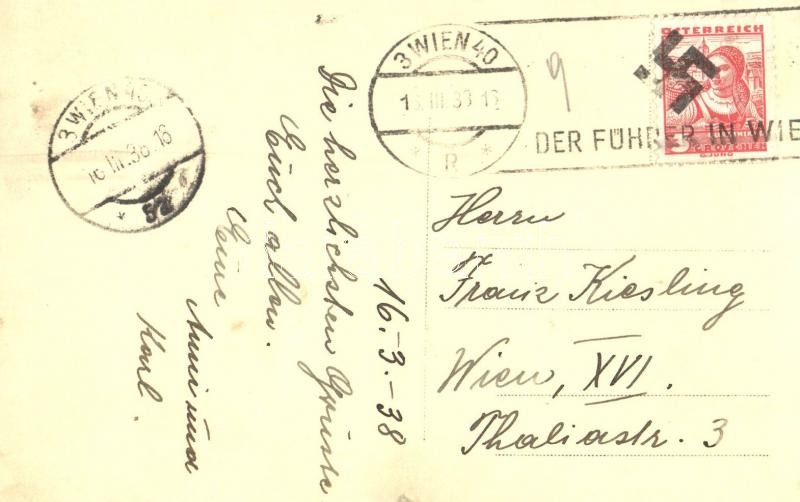 3 WIEN 40
16 III 38 16
3 WIEN 40
III.38
* R *
DER FÜHRER IN WIE
9
ÖSTERREICH
Herrn
Franz Kiesling
Wien, XVI.
Thaliastr. 3
16.-3.-38
Die herzlichsten Grüsse
Euch allen.
Eure
Anni und
Karl.